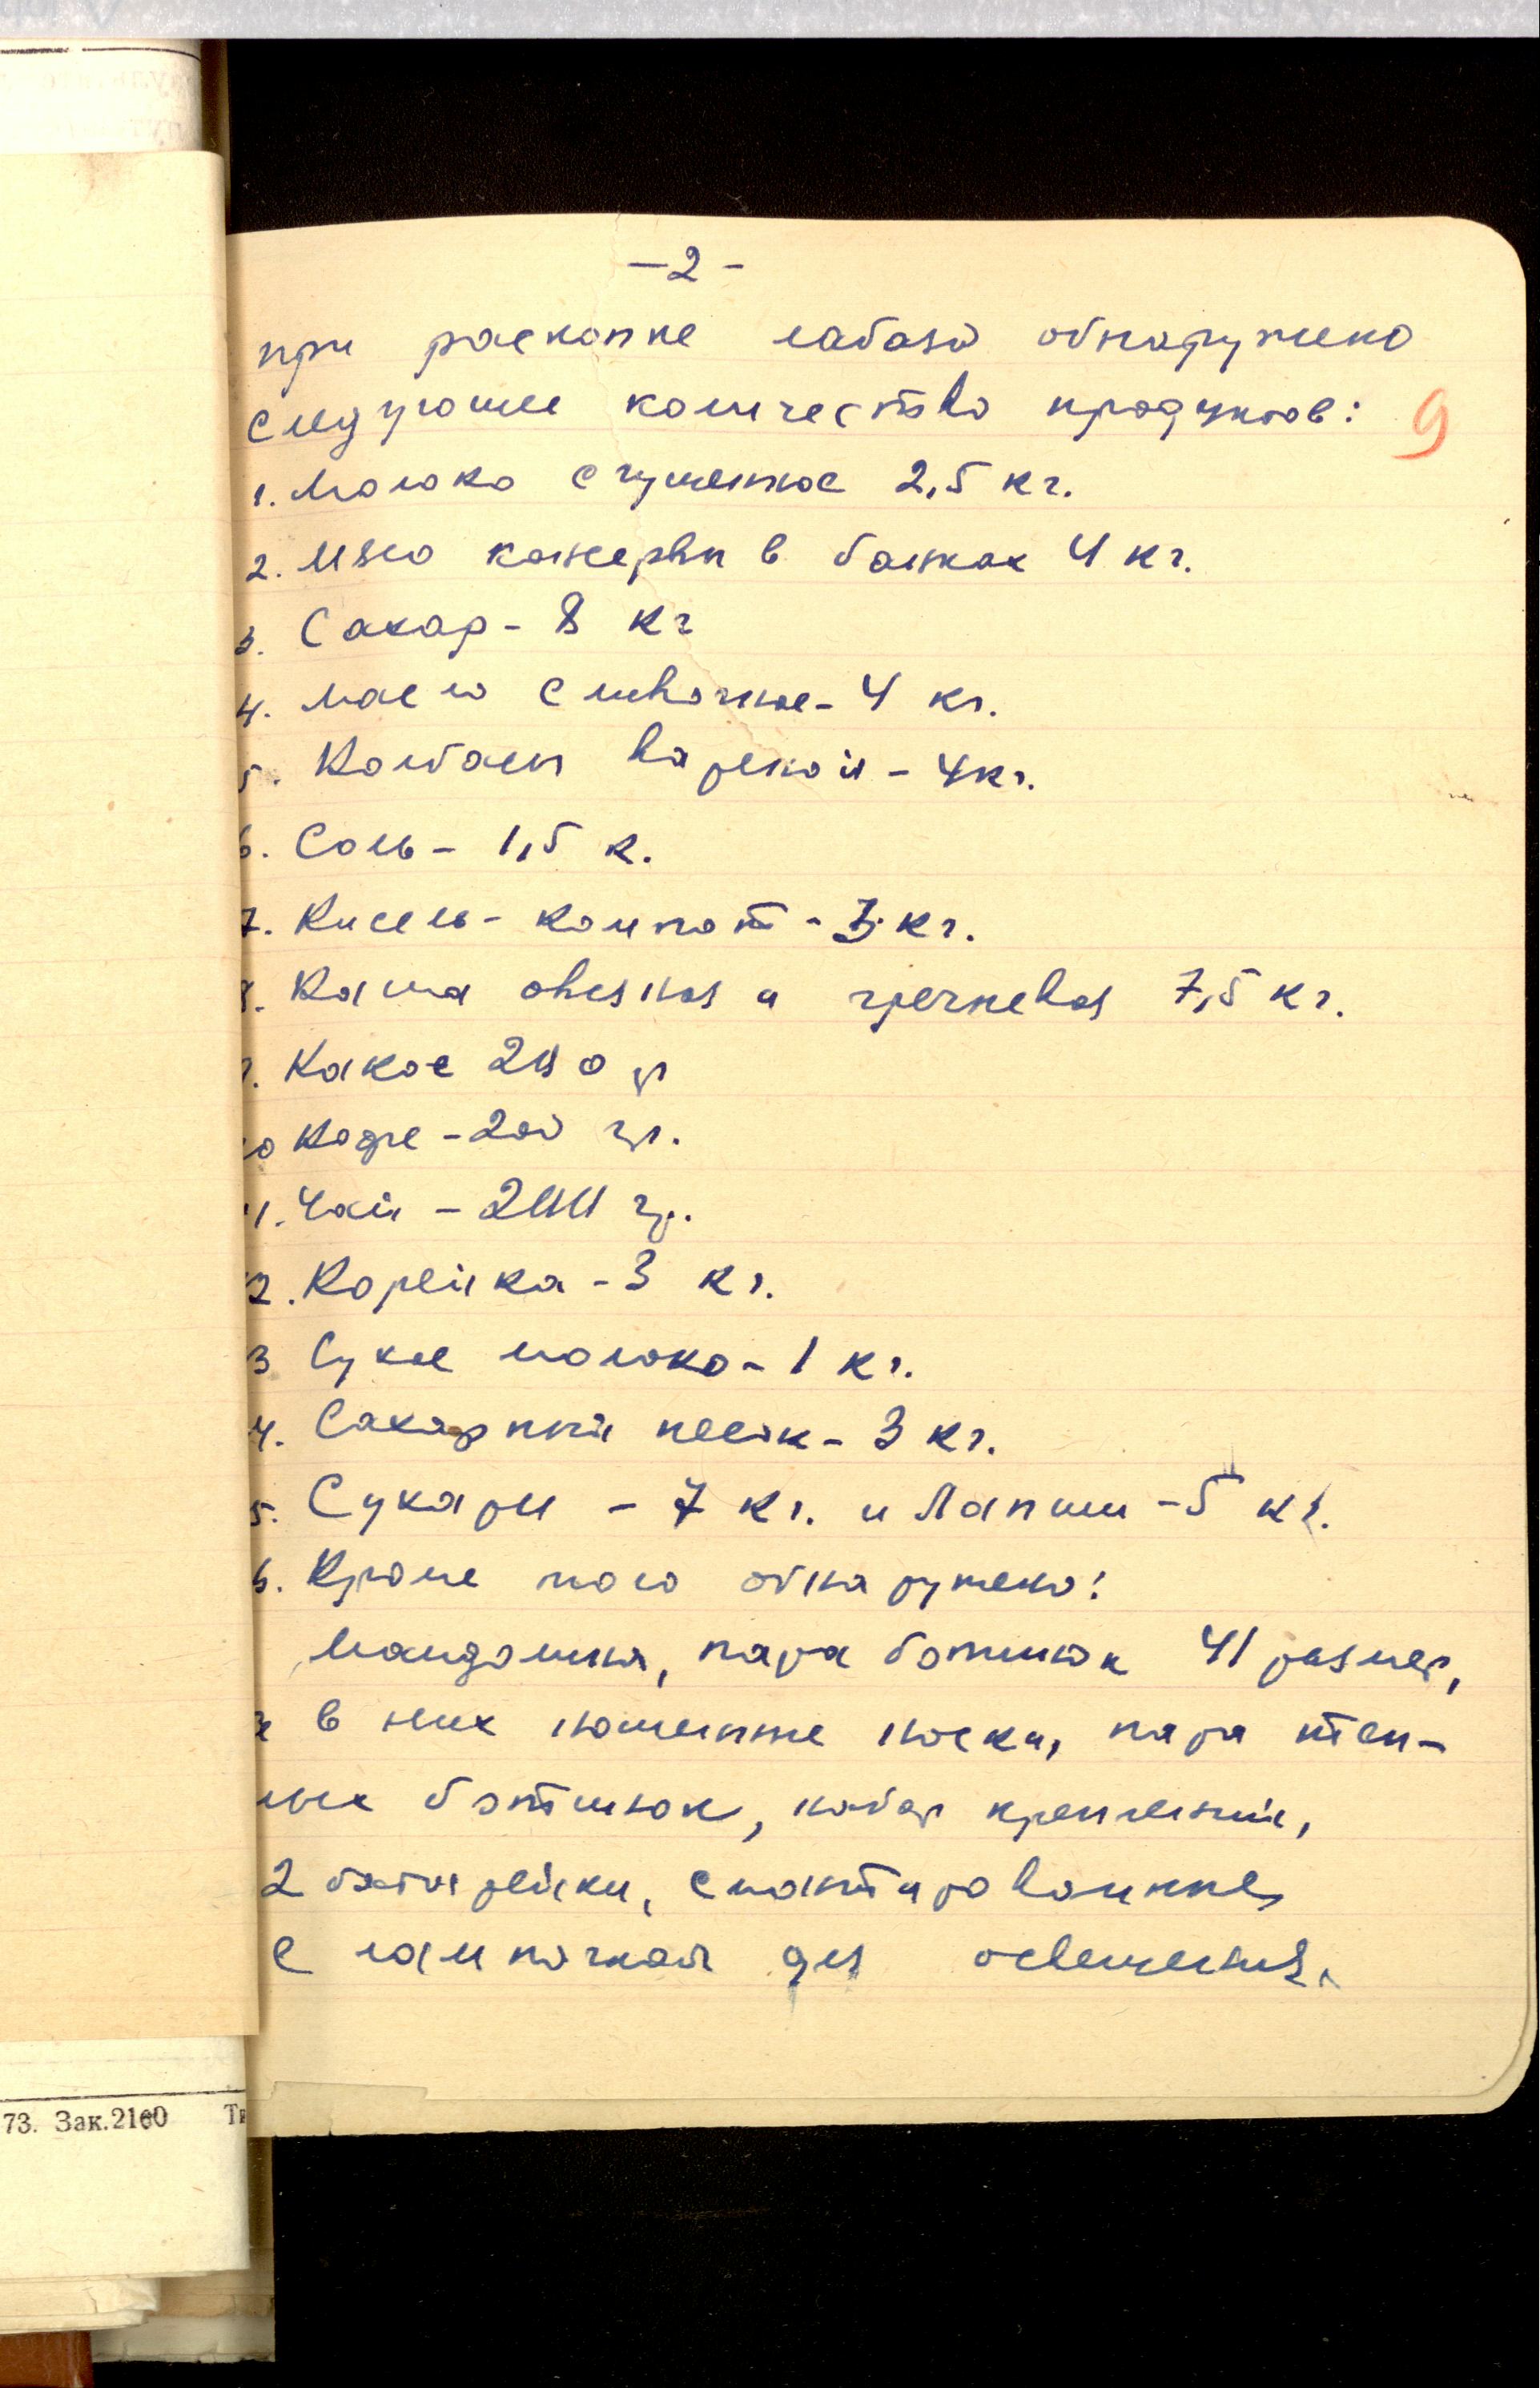 -2-
при раскопке лабаза обнаружено
следующее количество продуктов:
9
1. Молоко сгущенное 2,5 кг.
2. Мясо консервы в банках 4 кг.
3. Сахар - 8 кг
4. Масло сливочное - 4 кг.
5. Колбасы вареной - 4 кг.
6. Соль - 1,5 к.
7. Кисель - компот - 3 кг.
8. Каша овсяная и гречневая 7,5 кг.
9. Какое 200 гр
10 Кофе - 200 гр.
11. Чай - 200 гр.
12. Корейка - 3 кг.
3 Сухое молоко - 1 кг.
4. Сахарный песок - 3 кг.
5. Сухари - 7 кг. и Лапши - 5 кг.
6. Кроме того обнаружено:
Мандолина, пара ботинок 41 размер,
и в них ношенные носки, пара теп-
лых ботинок, набор креплений,
2 батарейки, смонтированные
с лампочкой для освещения.
73. Зак.2160